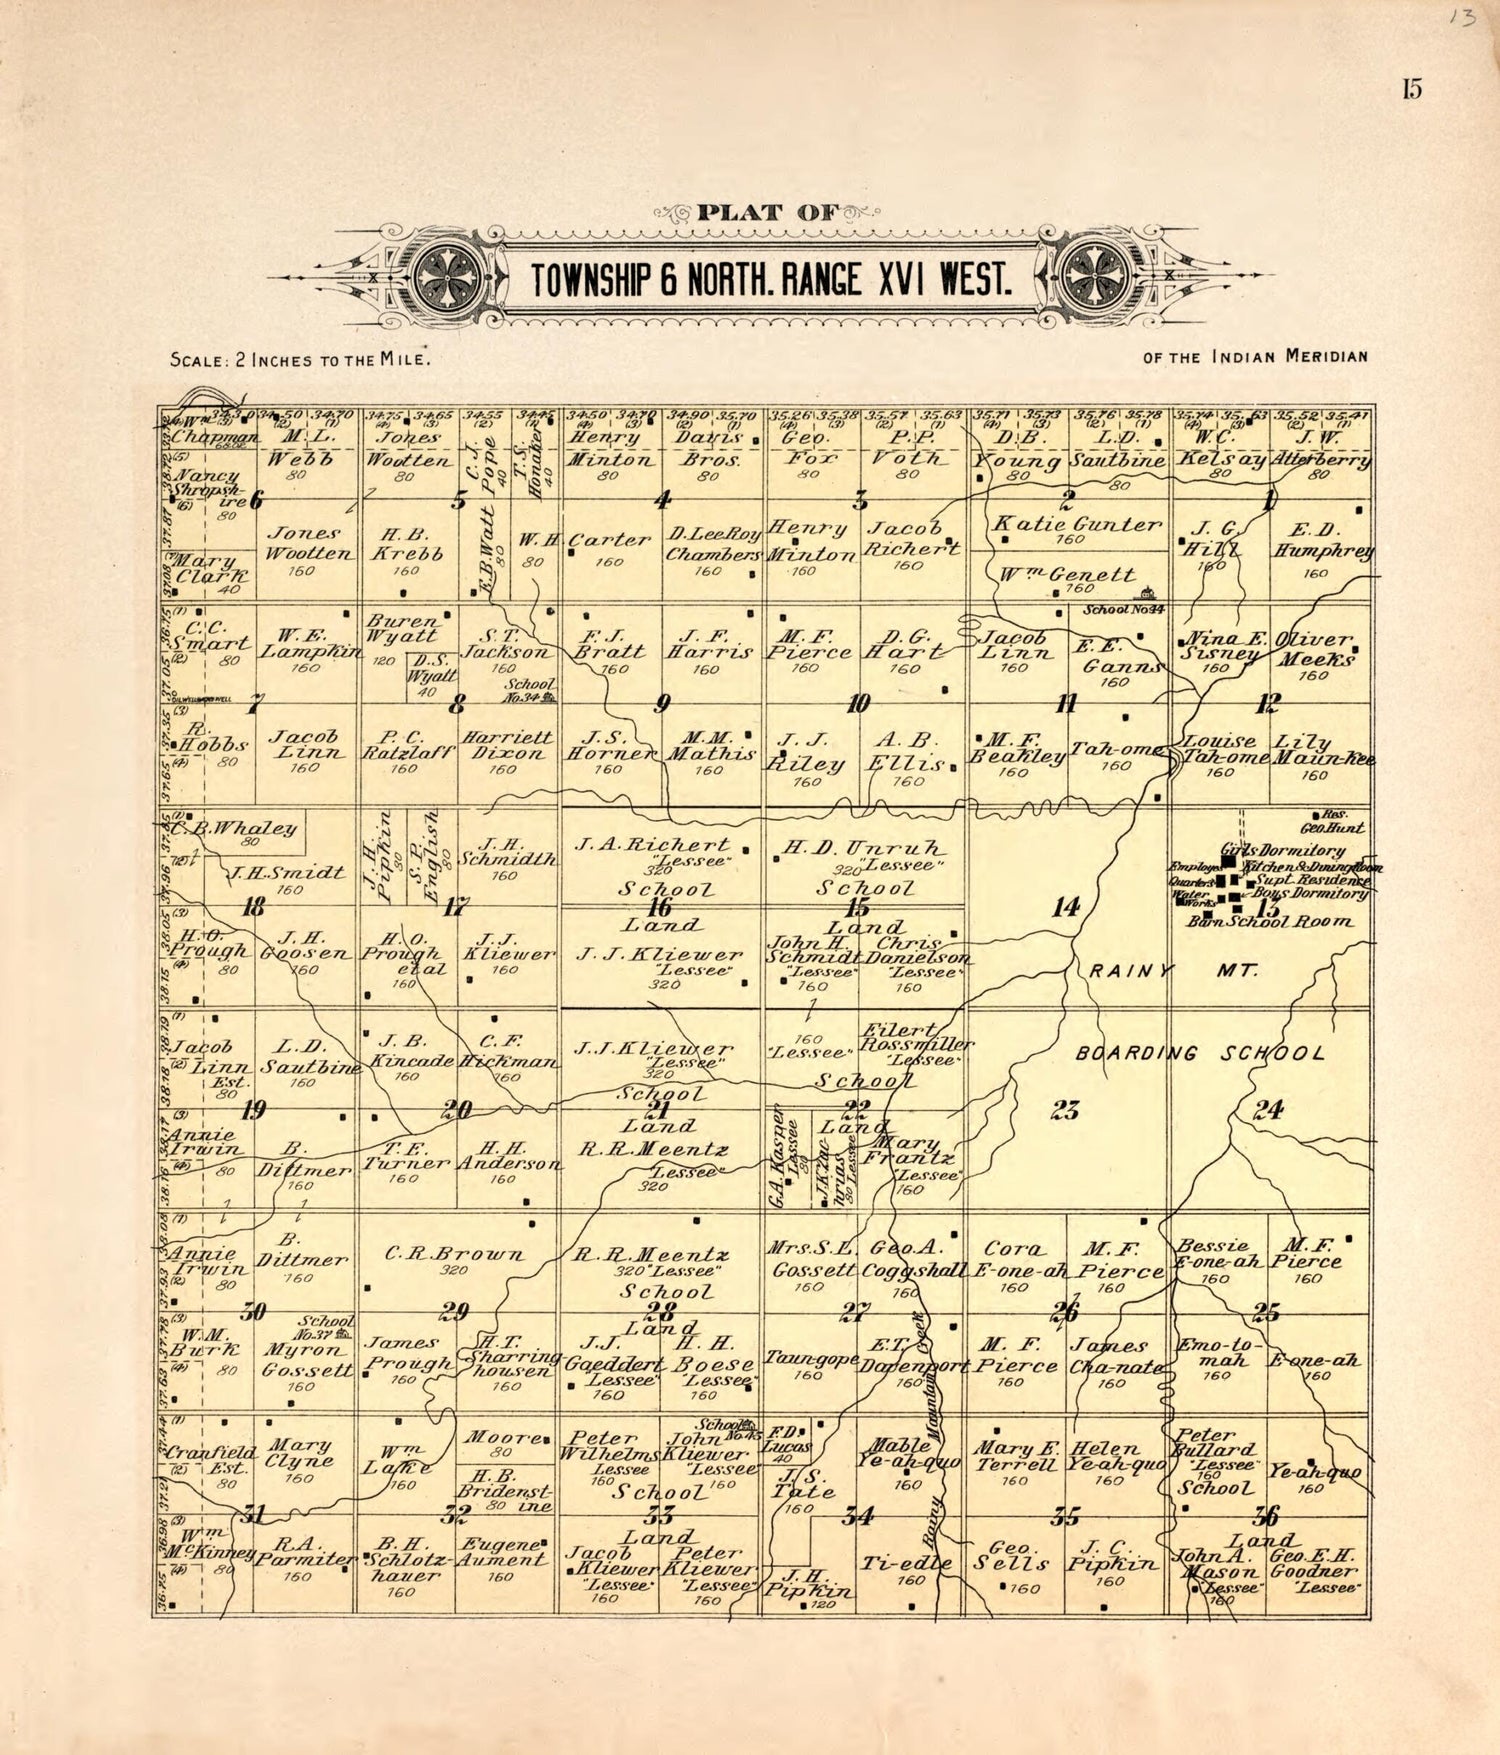 13
15
PLAT OF
TOWNSHIP 6 NORTH. RANGE XVI WEST.
SCALE: 2 INCHES TO THE MILE.
OF THE INDIAN MERIDIAN
34.50 34.70 34.75 34.65 34.55 34.45 34.50 34.70 34.90 35.70 35.26 35.38 35.57 35.63 35.71 35.73 35.76 35.78 35.74 35.63 35.52 35.41
Wm Chapman
M.L. Webb 80
Jones Wootten 80
C.J. Pope 40
T.S. Honaker 40
Henry Minton 80
Davis Bros. 80
Geo. Fox 80
P.P. Voth 80
D.B. Young 80
L.D. Sautbine 80
W.C. Kelsay 80
J.W. Atterberry 80
Nancy Shropshire 80
6
5
4
3
2
1
Mary Clark 40
Jones Wootten 160
H.B. Krebb 160
E.B. Watt 80
W.H. Carter 80
160
D. LeeRoy Chambers 160
Henry Minton 160
Jacob Richert 160
Katie Gunter 160
Wm Genett 160
School No 44
J.G. Hill 160
E.D. Humphrey 160
C.C. Smart 80
W.E. Lampkin 160
Buren Wyatt 120
D.S. Wyatt 40
S.T. Jackson 160
School No. 34
F.J. Bratt 160
J.F. Harris 160
M.F. Pierce 160
D.G. Hart 160
Jacob Linn 160
E.E. Ganns 160
Nina E. Sisney 160
Oliver Meeks 160
7
8
9
10
11
12
R. Hobbs 80
Jacob Linn 160
P.C. Ratzlaff 160
Harriett Dixon 160
J.S. Horner 160
M.M. Mathis 160
J.J. Riley 160
A.B. Ellis 160
M.F. Beakley 160
Tah-ome 160
Louise Tah-ome 160
Lily Maun-kee 160
C.B. Whaley 80
J.H. Smidt 160
J.H. Pipkin 80
S.P. English 80
J.H. Schmidth 160
J.A. Richert "Lessee" 320
School
H.D. Unruh 320 "Lessee"
School
Res. Geo. Hunt
Girls Dormitory
Employes Quarters
Kitchen & Dining Room
Supt. Residence
Boys Dormitory
Water Works
Barn School Room
18
17
16
15
14
13
Land
Land
H.O. Prough 80
J.H. Goosen 160
H.O. Prough et al 160
J.J. Kliewer 160
J.J. Kliewer "Lessee" 320
John H. Schmidt "Lessee" 160
Chris Danielson "Lessee" 160
RAINY MT.
BOARDING SCHOOL
Jacob Linn Est. 80
L.D. Sautbine 160
J.B. Kincade 160
C.F. Hickman 160
J.J. Kliewer "Lessee" 320
School
160 "Lessee"
Eilert Rossmiller "Lessee"
School
19
20
21
22
23
24
Land
Land
Annie Irwin 80
B. Dittmer 160
T.E. Turner 160
H.H. Anderson 160
R.R. Meentz "Lessee" 320
G.A. Kasper Lessee 80
J.K. Zachrias 80 Lessee
Mary Frantz "Lessee" 160
Annie Irwin 80
B. Dittmer 160
C.R. Brown 320
R.R. Meentz 320 "Lessee"
School
Mrs. S.L. Gossett 160
Geo. A. Coggshall 160
Cora E-one-ah 160
M.F. Pierce 160
Bessie E-one-ah 160
M.F. Pierce 160
30
29
28
27
26
25
Land
W.M. Burk 80
School No. 37
Myron Gossett 160
James Prough 160
H.T. Sharringhousen 160
J.J. Gaeddert Lessee 160
H.H. Boese Lessee 160
Taungope 160
E.T. Davenport 160
M.F. Pierce 160
James Cha-nate 160
Emo-to-mah 160
E-one-ah 160
Cranfield Est. 80
Mary Clyne 160
Wm Lake 160
Moore 80
H.B. Bridenstine 80
Peter Wilhelms Lessee 160
School No. 45
John Kliewer "Lessee" 160
School
F.D. Lucas 40
J.S. Tate 160
Mable Ye-ah-quo 160
Mary E. Terrell 160
Helen Ye-ah-quo 160
Peter Bullard "Lessee" 160
School
Ye-ah-quo 160
Rainy Mountain Creek
31
32
33
34
35
36
Land
Land
Wm McKinney 80
R.A. Parmiter 160
B.H. Schlotzhauer 160
Eugene Aument 160
Jacob Kliewer "Lessee" 160
Peter Kliewer "Lessee" 160
J.H. Pipkin 120
Ti-edle 160
Geo. Sells 160
J.C. Pipkin 160
John A. Mason "Lessee" 160
Geo. E.H. Goodner "Lessee"